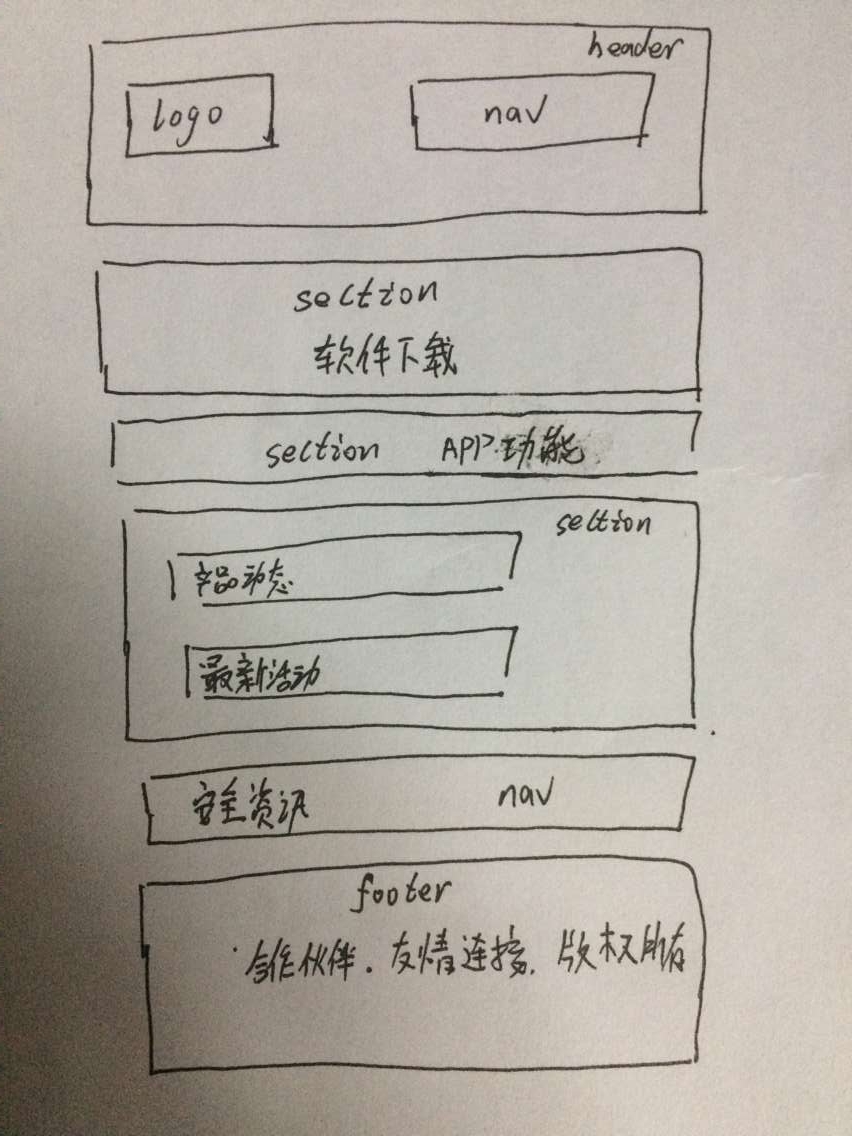 header
logo nav
section
软件下载
section APP功能
section
产品动态
最新活动
安全资讯 nav
footer
合作伙伴. 友情连接. 版权所有